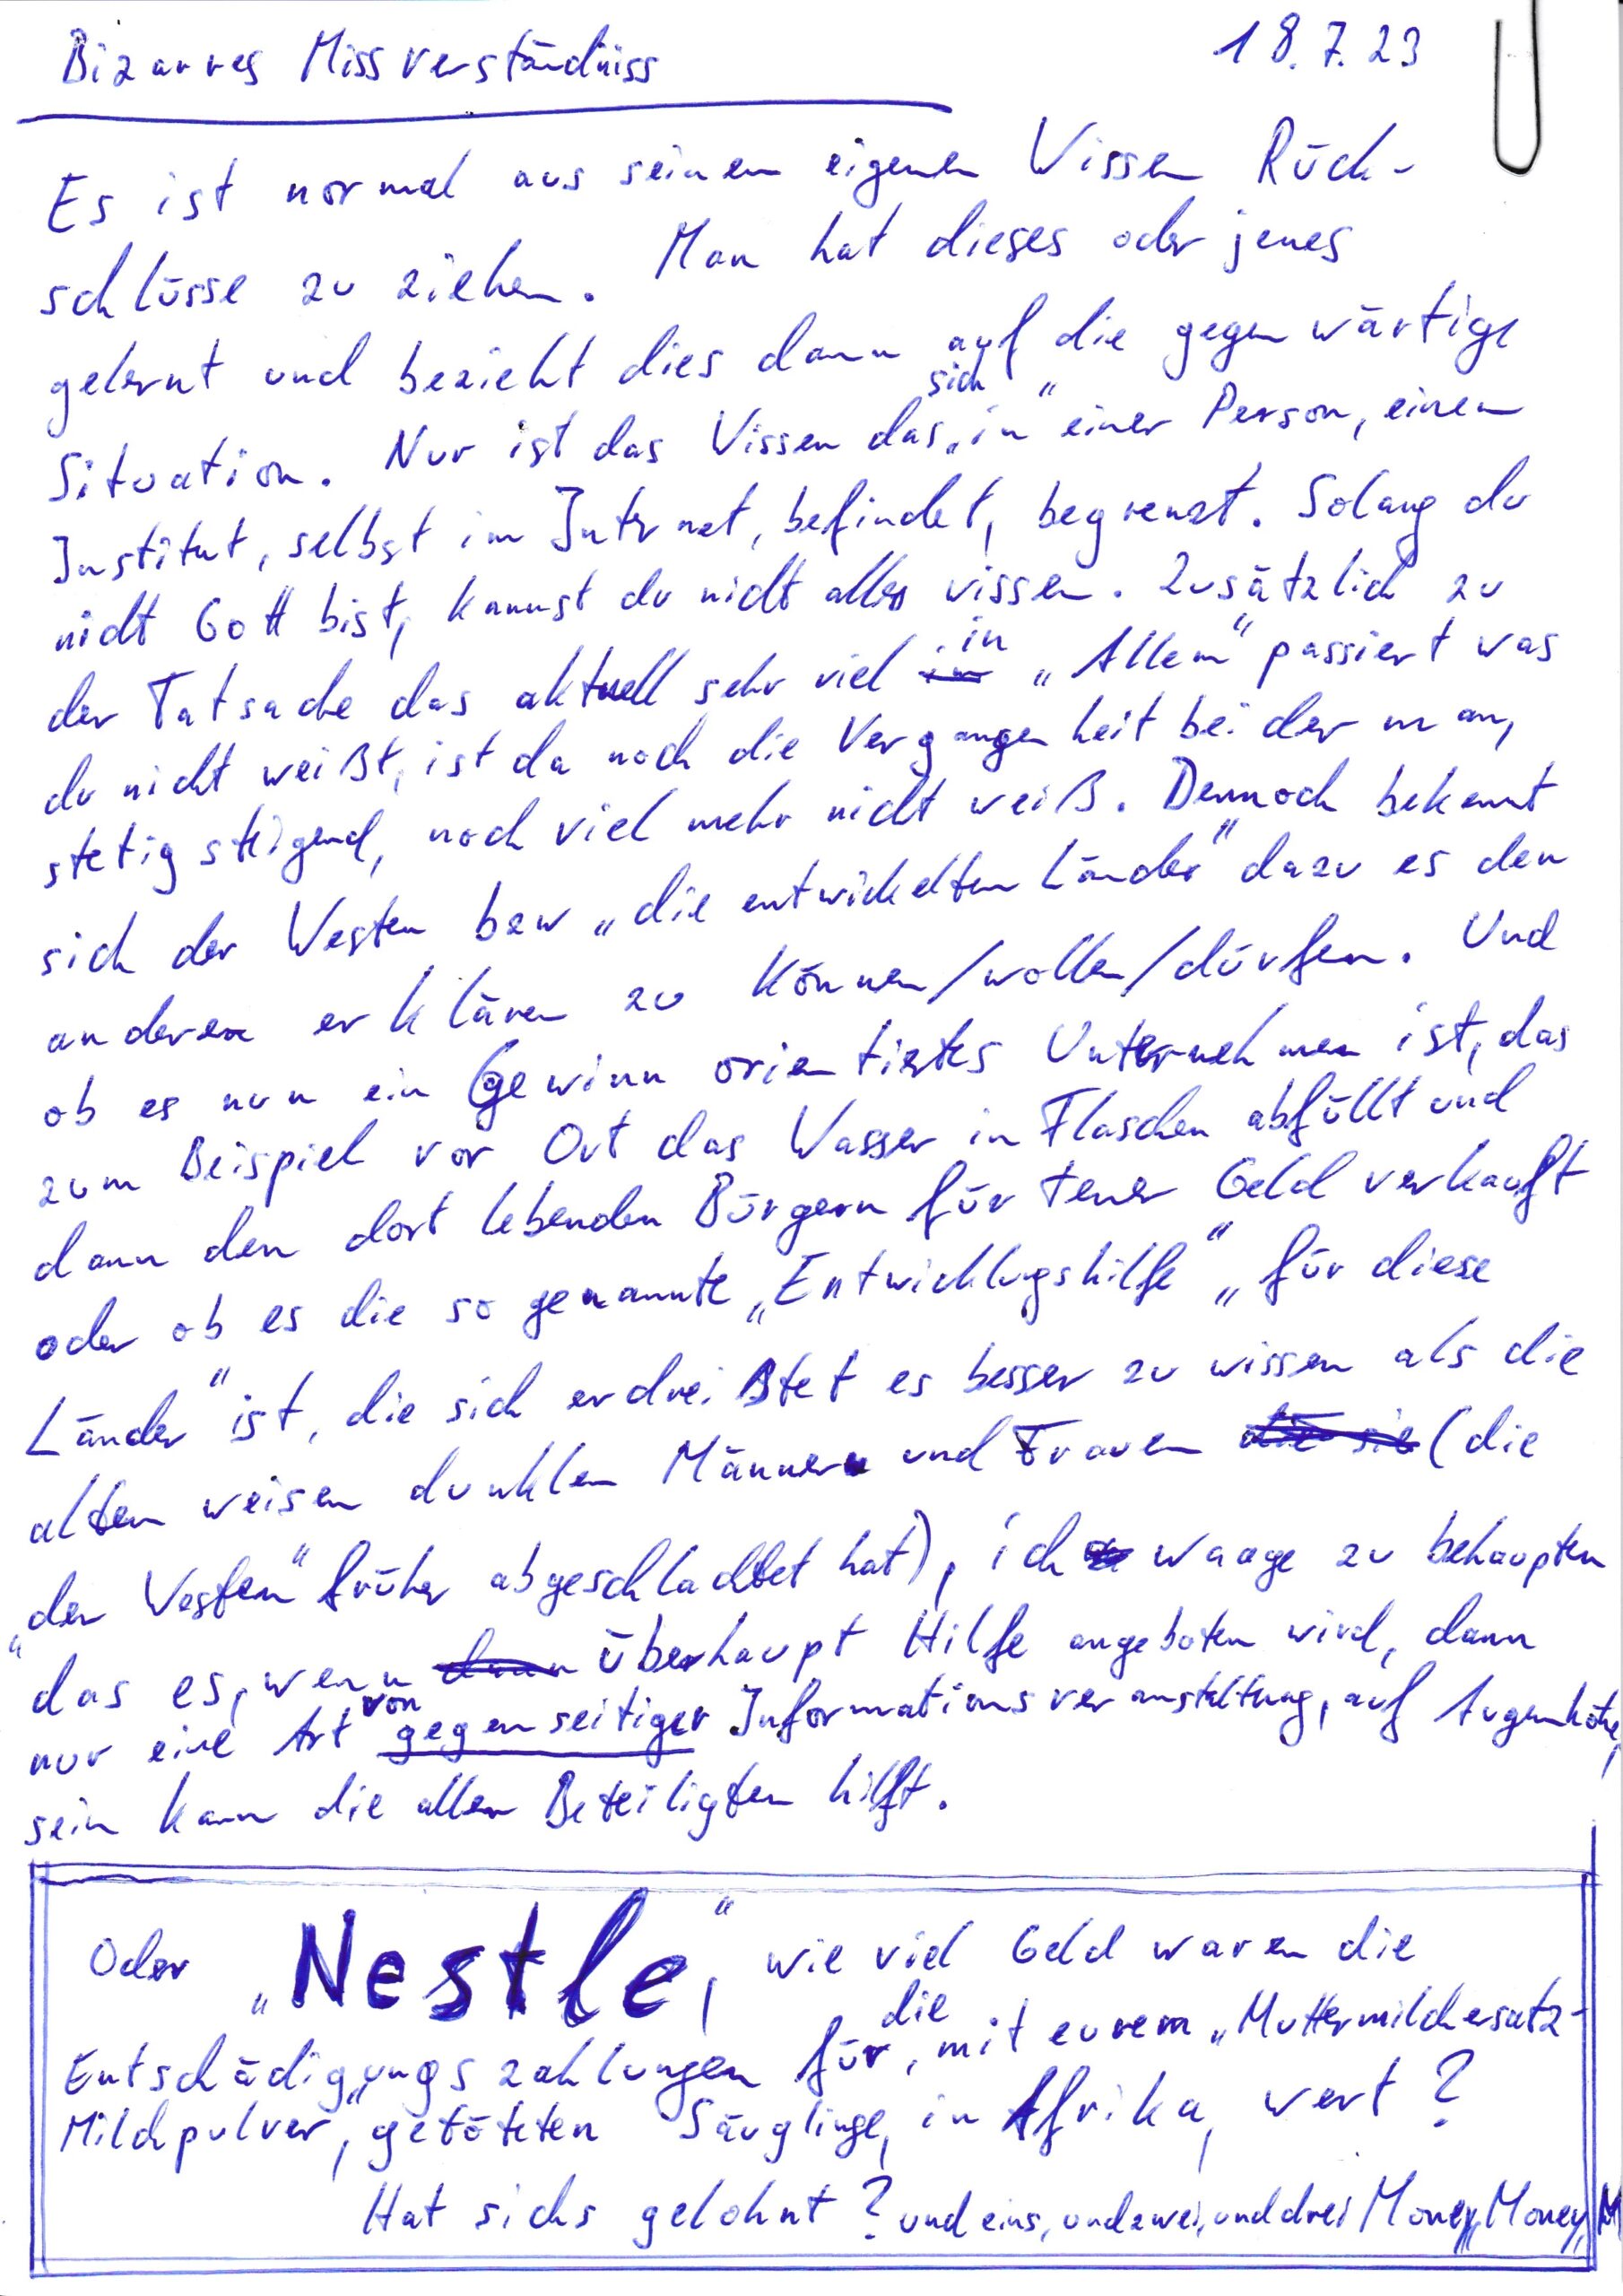 Bizarres Missverständniss 18.7.23
Es ist normal aus seinem eigenen Wissen Rück-
schlüsse zu ziehen. Man hat dieses oder jenes
gelernt und bezieht dies dann auf die gegenwärtige
Situation. Nur ist das Wissen das sich „in" einer Person, einem
Institut, selbst im Internet, befindet, begrenzt. Solang du
nicht Gott bist, kannst du nicht alles wissen. Zusätzlich zu
der Tatsache das aktuell sehr viel in „Allem" passiert was
du nicht weißt, ist da noch die Vergangenheit bei der man,
stetig steigend, noch viel mehr nicht weiß. Dennoch bekennt
sich der Westen bzw „die entwickelten Länder" dazu es den
anderen erklären zu können/wollen/dürfen. Und
ob es nun ein Gewinn orientiertes Unternehmen ist, das
zum Beispiel vor Ort das Wasser in Flaschen abfüllt und
dann den dort lebenden Bürgern für teuer Geld verkauft
oder ob es die so genannte „Entwicklungshilfe" „für diese
Länder" ist, die sich erdreißtet es besser zu wissen als die
alten weisen dunklen Männer und Frauen (die
„der Westen" früher abgeschlachtet hat), ich waage zu behaupten
das es, wenn überhaupt Hilfe angeboten wird, dann
nur eine Art von gegenseitiger Informationsveranstaltung, auf Augenhöhe,
sein kann die allen Beteiligten hilft.
Oder „Nestle", wie viel Geld waren die
Entschädigungszahlungen für die, mit eurem „Muttermilchersatz-
Milchpulver", getöteten Säuglinge, in Afrika, wert?
Hat sichs gelohnt? und eins, und zwei, und drei Money, Money, M